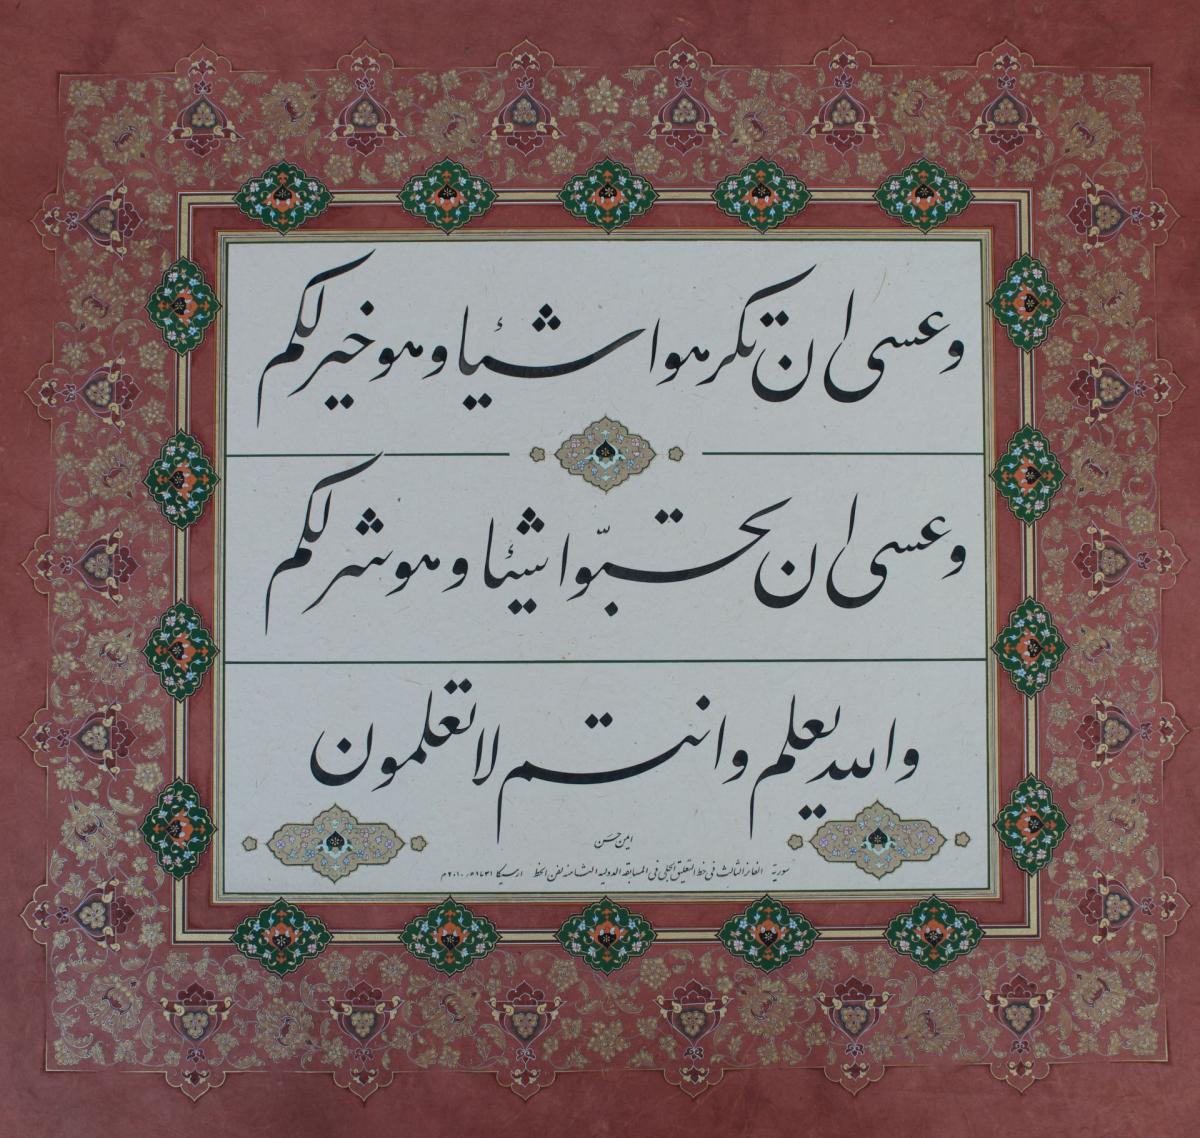 وعسى ان تكرهوا شيئا وهو خير لكم
وعسى ان تحبّوا شيئا وهو شر لكم
والله يعلم وانتم لا تعلمون
امين حسن
سورية الفائز الثالث في خط التعليق الجلي في المسابقة الدولية الثامنة لفن الخط ارسيكا